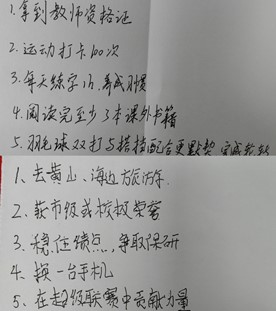 1.拿到教师资格证
2.运动打卡100次
3.每天练字1h,养成习惯
4.阅读完至少3本课外书籍
5.羽毛球双打与搭档配合更默契,完成
1、去黄山、海边旅游.
2、获市级或校级荣誉
3、稳住绩点,争取保研
4、换一台手机
5、在超级联赛中贡献力量